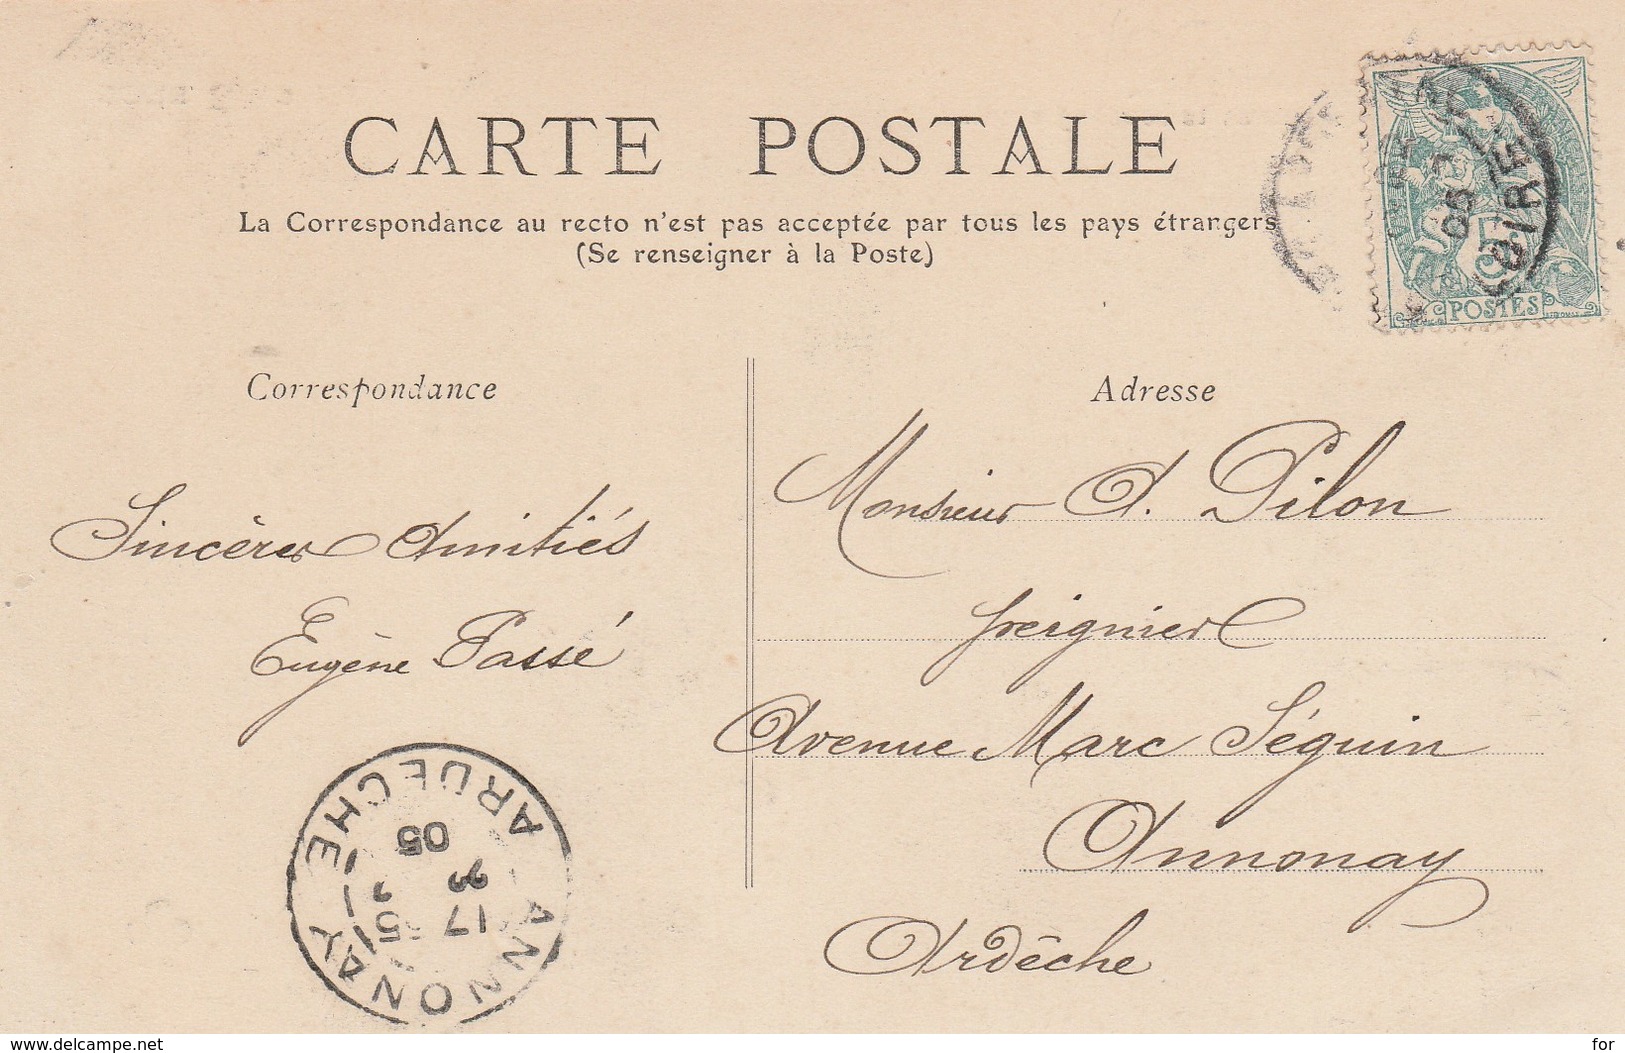 CARTE POSTALE
La Correspondance au recto n'est pas acceptée par tous les pays étrangers
(Se renseigner à la Poste)
5
POSTES
LOIRE
Correspondance
Sincères Amitiés
Eugène Passé
ANNONAY
ARDECHE
17
05
Adresse
Monsieur A. Pilon
Avenue Marc Séguin
Annonay
Ardèche
www.delcampe.net
for